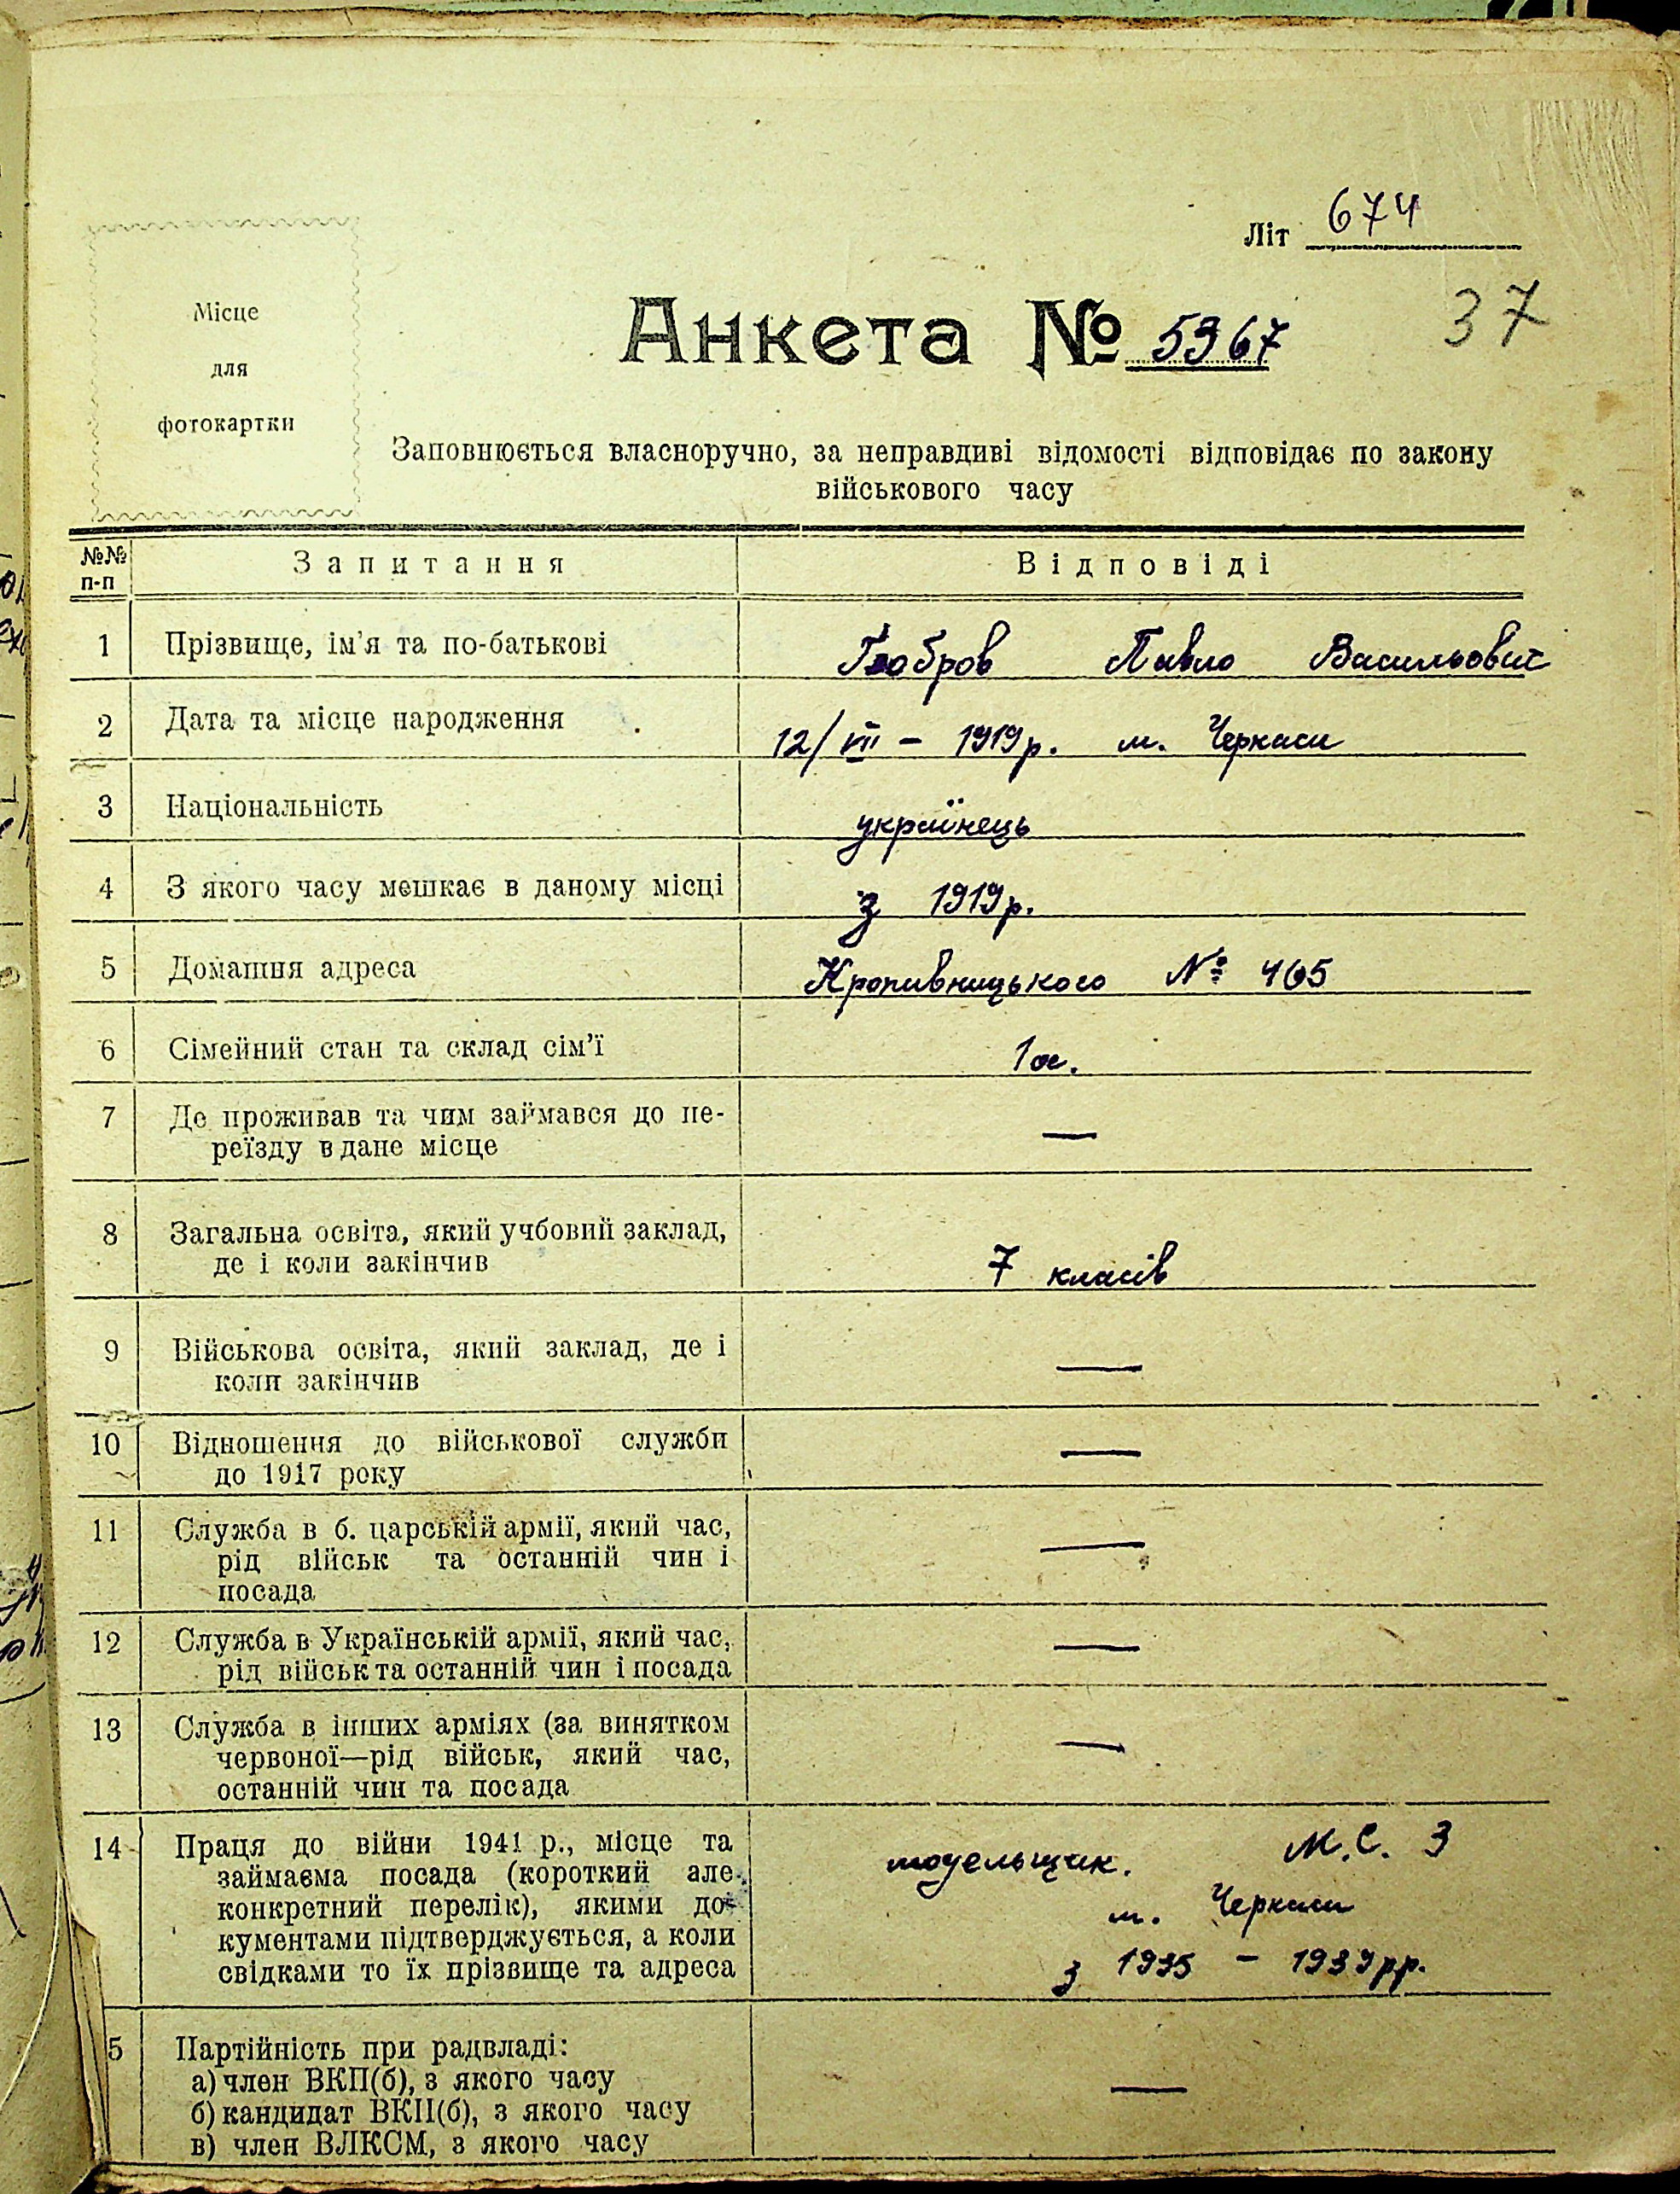 Літ 674
37
Місце
для
фотокартки
Анкета № 5367
Заповнюється власноручно, за неправдиві відомості відповідає по закону
військового часу
№№ п-п Запитання Відповіді
1 Прізвище, ім'я та по-батькові Павло Васильович
2 Дата та місце народження 12/VII – 1919 р. м. Черкаси
3 Національність українець
4 З якого часу мешкає в даному місці з 1919 р.
5 Домашня адреса Кропивницького № 465
6 Сімейний стан та склад сім'ї 1 ос.
7 Де проживав та чим займався до пе-
реїзду в дане місце —
8 Загальна освіта, який учбовий заклад,
де і коли закінчив 7 класів
9 Військова освіта, який заклад, де і
коли закінчив —
10 Відношення до військової служби
до 1917 року —
11 Служба в б. царській армії, який час,
рід військ та останній чин і
посада —
12 Служба в Українській армії, який час,
рід військ та останній чин і посада —
13 Служба в інших арміях (за винятком
червоної—рід військ, який час,
останній чин та посада —
14 Праця до війни 1941 р., місце та
займаєма посада (короткий але
конкретний перелік), якими до-
кументами підтверджується, а коли
свідками то їх прізвище та адреса
модельщик. М.С. З
м. Черкаси
з 1935 – 1939 рр.
5 Партійність при радвладі:
а) член ВКП(б), з якого часу
б) кандидат ВКП(б), з якого часу —
в) член ВЛКСМ, з якого часу